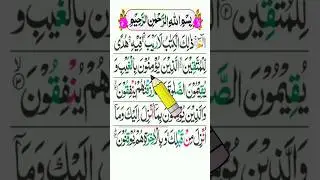 بِسْمِ اللهِ الرَّحْمٰنِ الرَّحِيْمِ
الٓمّٓ ذٰلِكَ الْكِتٰبُ لَا رَيْبَ فِيْهِ هُدًى
لِّلْمُتَّقِيْنَ الَّذِيْنَ يُؤْمِنُوْنَ بِالْغَيْبِ وَ
يُقِيْمُوْنَ الصَّلٰوةَ يُنْفِقُوْنَ
وَالَّذِيْنَ يُؤْمِنُوْنَ بِمَآ اُنْزِلَ اِلَيْكَ وَمَآ
اُنْزِلَ مِنْ قَبْلِكَ وَبِالْاٰخِرَةِ هُمْ يُوْقِنُوْنَ